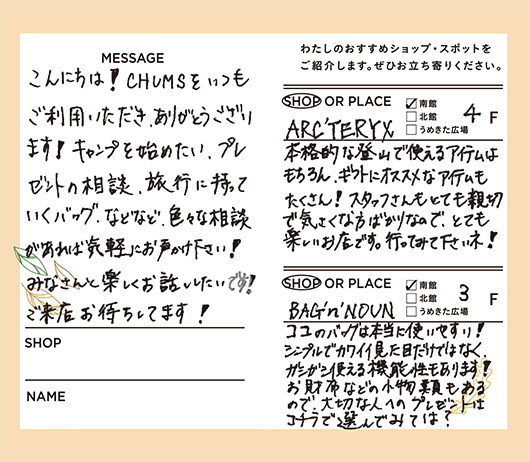 MESSAGE
こんにちは！CHUMSをいつも
ご利用いただき、ありがとうござい
ます！キャンプを始めたい、プレ
ゼントの相談、旅行に持って
いくバッグ、などなど、色々な相談
があれば気軽にお声かけ下さい！
みなさんと楽しくお話いたいです！
ご来店お待ちしてます！
SHOP
NAME
わたしのおすすめショップ・スポットを
ご紹介します。ぜひお立ち寄りください。
SHOP OR PLACE
南館
北館
うめきた広場
4 F
ARC'TERYX
本格的な登山で使えるアイテムは
もちろん、ギフトにオススメなアイテムも
たくさん！スタッフさんもとても親切
で気さくな方ばかりなので、とても
楽しいお店です。行ってみて下さいネ！
SHOP OR PLACE
南館
北館
うめきた広場
3 F
BAG'n'NOUN
ココのバッグは本当に使いやすい！
シンプルでカワイイ見た目だけではなく、
ガシガシ使える機能性もあります！
お財布などの小物類もある
ので、大切な人へのプレゼントは
コチラで選んでみては？